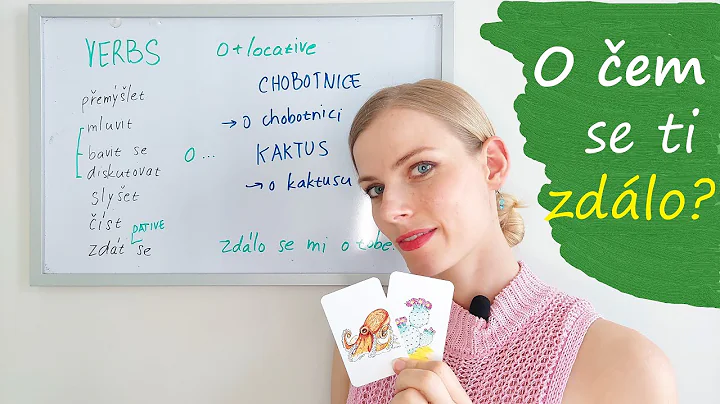 VERBS
přemýšlet
mluvit
bavit se
diskutovat
slyšet
číst
DATIVE
zdát se
o ...
o + locative
CHOBOTNICE
→ o chobotnici
KAKTUS
→ o kaktusu
zdálo se mi o tobě.
O čem
se ti
zdálo?